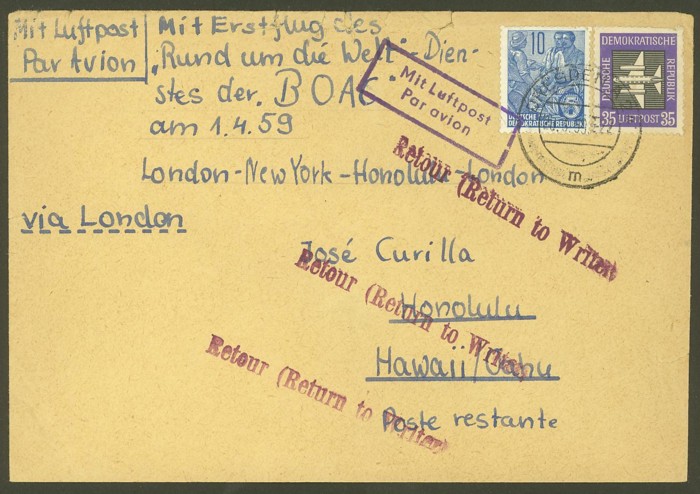 Mit Luftpost
Par Avion
Mit Erstflug des
„Rund um die Welt"-Dien-
stes der „BOAC"
am 1.4.59
London-New York-Honolulu-London
via London
José Curilla
Honolulu
Hawaii/Oahu
Poste restante
Mit Luftpost
Par avion
10
DEUTSCHE
DEMOKRATISCHE REPUBLIK
DEMOKRATISCHE
DEUTSCHE
REPUBLIK
35 LUFTPOST 35
DRESDEN
m
Retour (Return to Writer)
Retour (Return to Writer)
Retour (Return to Writer)